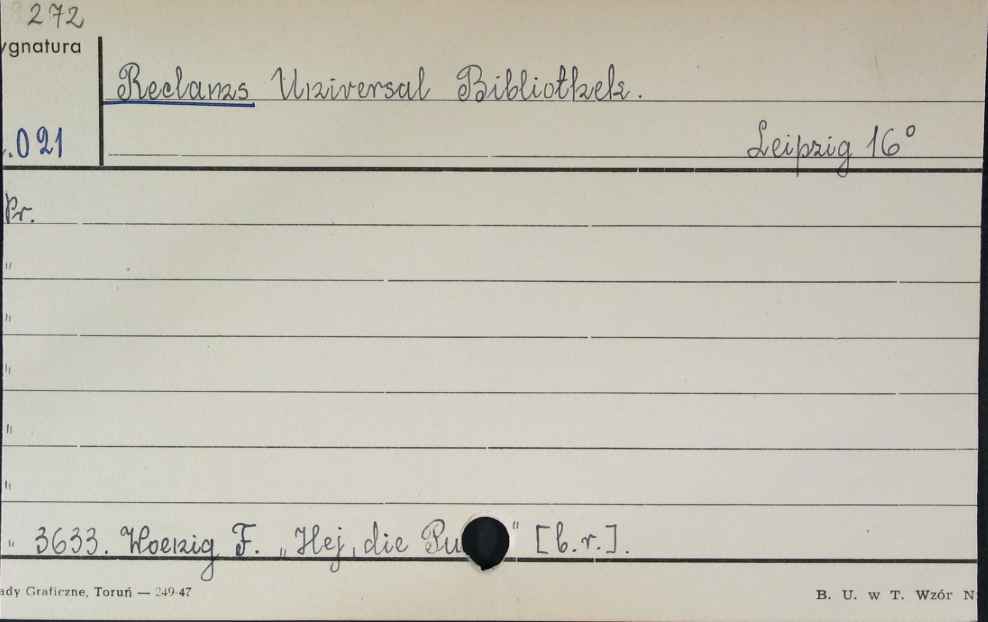 272
ygnatura
Reclams Universal Bibliothek.
.021
Leipzig 16°
Pr.
"
"
"
"
"
" 3633. Hoenig F. „Hej, die Pu " [b.r.].
ady Graficzne, Toruń — 249-47
B. U. w T. Wzór N